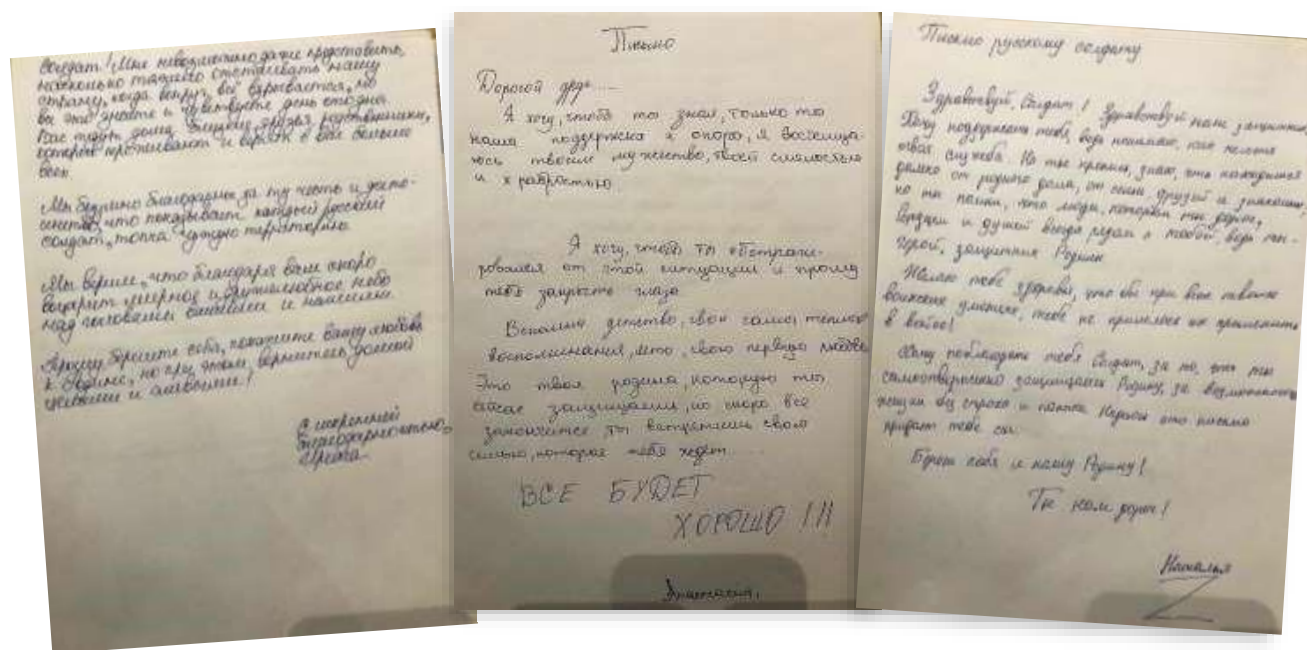 Солдат! Мне невозможно даже представить,
насколько тяжело отстаивать нашу
страну, когда вокруг всё взрывается, но
вы это знаете и чувствуете день ото дня
Вас ждут дома близкие, друзья, родственники,
которые переживают и верят в вас больше
всех
Мы безумно благодарны за ту честь и досто-
инство, что показывает каждый русский
солдат, топча чужую территорию
Мы верим, что благодаря вам скоро
воцарит мирное и дружелюбное небо
над головами вашими и нашими.
Прошу, берегите себя, покажите вашу любовь
к Родине, но при этом, вернитесь домой
целыми и живыми!
С искренней
благодарностью,
Письмо
Дорогой друг....
Я хочу, чтоб ты знал, только ты
наша поддержка и опора, я восхища-
юсь твоим мужеством, твоей смелостью
и храбростью.
Я хочу, чтоб ты абстраги-
ровался от этой ситуации и прошу
тебя закрыть глаза
Вспомни детство, свои самые теплые
воспоминания, лето, свою первую любовь
Это твоя родина, которую ты
сейчас защищаешь, но скоро все
закончится ты встретишь свою
семью, которая тебя ждет....
ВСЕ БУДЕТ
ХОРОШО !!!
Анастасия.
Письмо русскому солдату
Здравствуй, Солдат! Здравствуй наш защитник
Хочу поддержать тебя, ведь понимаю, как нелегка
твоя служба. Но ты крепись, знаю, что находишься
далеко от родного дома, от семьи друзей и знакомых,
но ты помни, что люди, которым ты дорог,
сердцем и душой всегда рядом с тобой, ведь ты-
герой, защитник Родины
Желаю тебе здоровья, что бы при всех твоих
воинских умениях, тебе не пришлось их применить
в войне!
Хочу поблагодарить тебя Солдат, за то, что ты
самоотверженно защищаешь Родину, за возможность
жить без страха и паники Надеюсь это письмо
придаст тебе сил.
Береги себя и нашу Родину!
Ты нам дорог!
Наталья